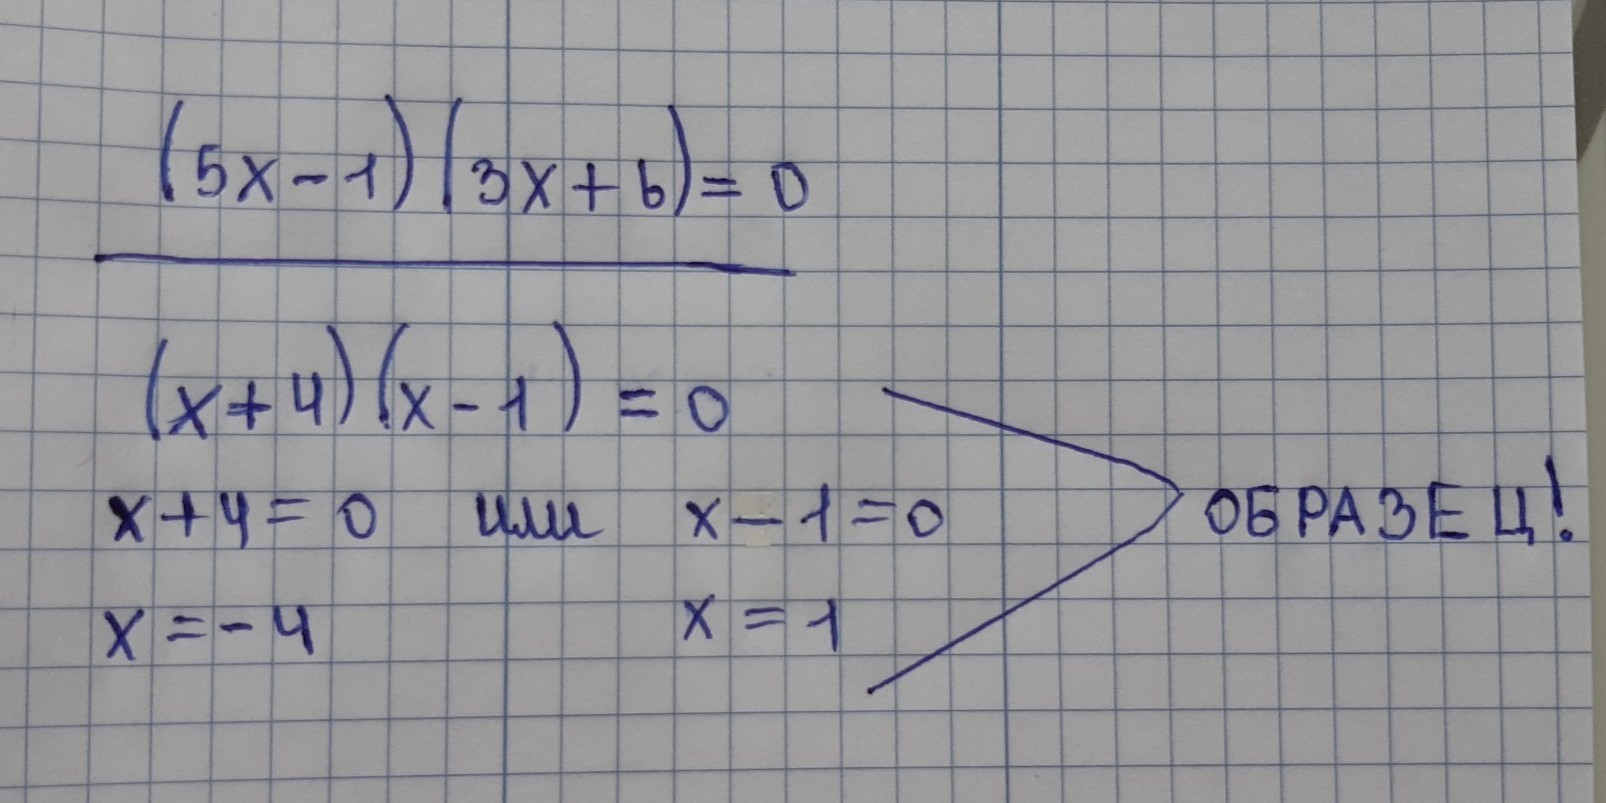 (5x-1)(3x+6)=0
(x+4)(x-1)=0
x+4=0 или x-1=0
ОБРАЗЕЦ!
x=-4 x=1